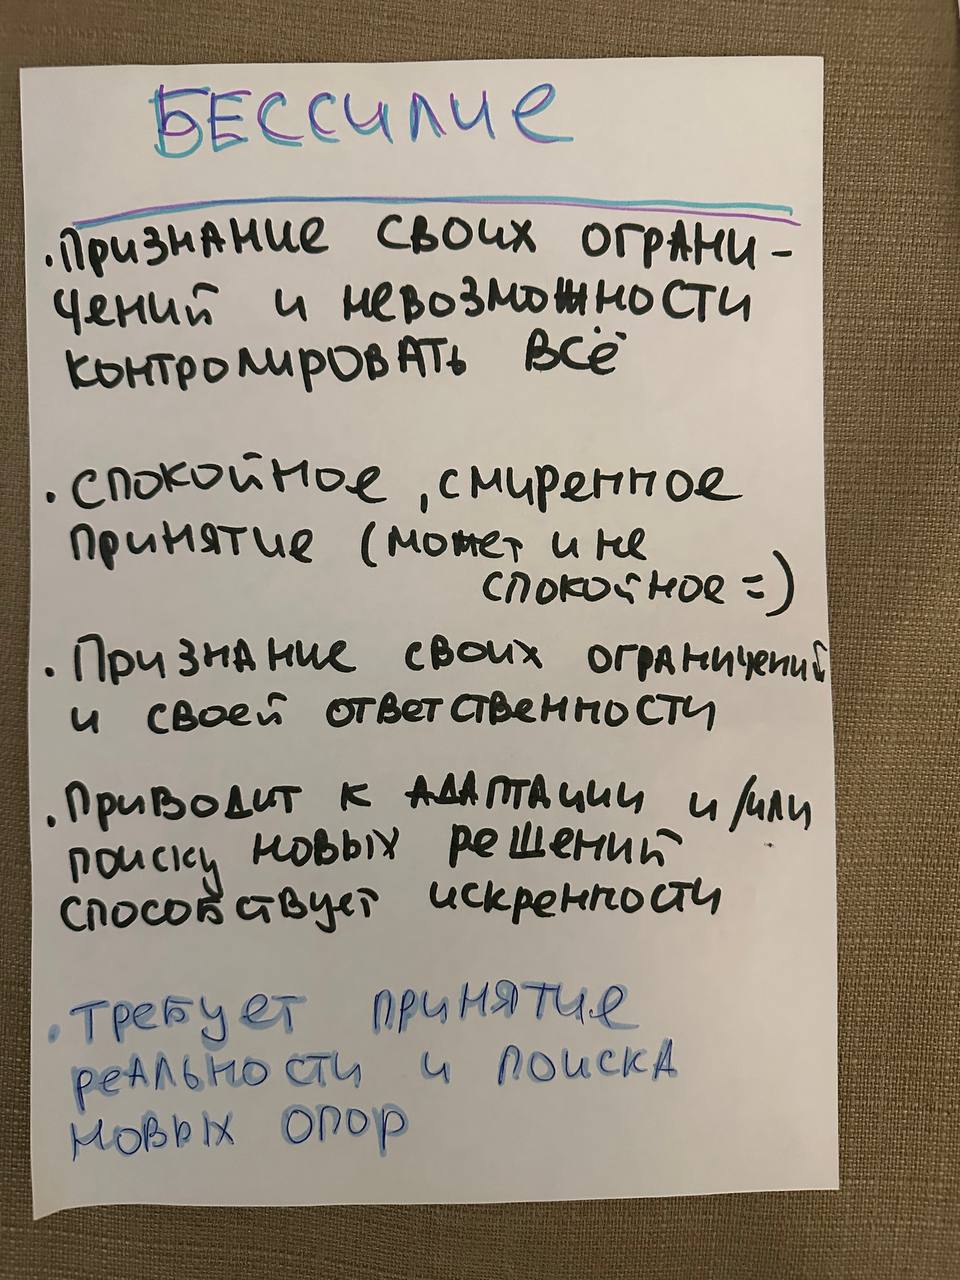 БЕССИЛИЕ
.ПРИЗНАНИЕ СВОИХ ОГРАНИ-
ЧЕНИЙ И НЕВОЗМОЖНОСТИ
КОНТРОЛИРОВАТЬ ВСЁ
. СПОКОЙНОЕ, СМИРЕННОЕ
ПРИНЯТИЕ (МОЖЕТ И НЕ
СПОКОЙНОЕ =)
. ПРИЗНАНИЕ СВОИХ ОГРАНИЧЕНИЙ
И СВОЕЙ ОТВЕТСТВЕННОСТИ
. ПРИВОДИТ К АДАПТАЦИИ И/ИЛИ
ПОИСКУ НОВЫХ РЕШЕНИЙ
СПОСОБСТВУЕТ ИСКРЕННОСТИ
. ТРЕБУЕТ ПРИНЯТИЕ
РЕАЛЬНОСТИ И ПОИСКА
НОВЫХ ОПОР